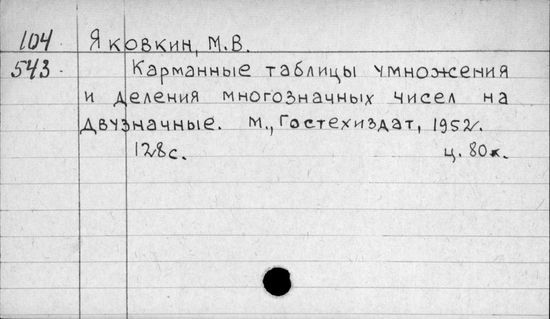 104 Яковкин, М.В.
543. Карманные таблицы умножения
и деления многозначных чисел на
двузначные. М., Гостехиздат, 1952.
128с. ц. 80к.